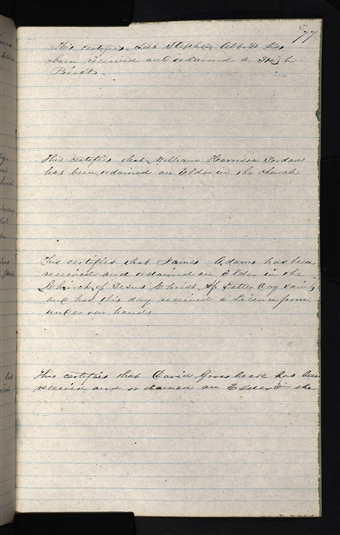 77
This certifies that Stephen Abbott has
been received and ordained a High
Priest.
This certifies that William Harrison Jordan
has been ordained an Elder in the church
This certifies that James Adams has been
received and ordained an Elder in the
Church of Jesus Christ of Latter Day Saints
and has this day received a Licence from
under our hands
This certifies that David Grosbeck has been
received and ordained an Elder in the